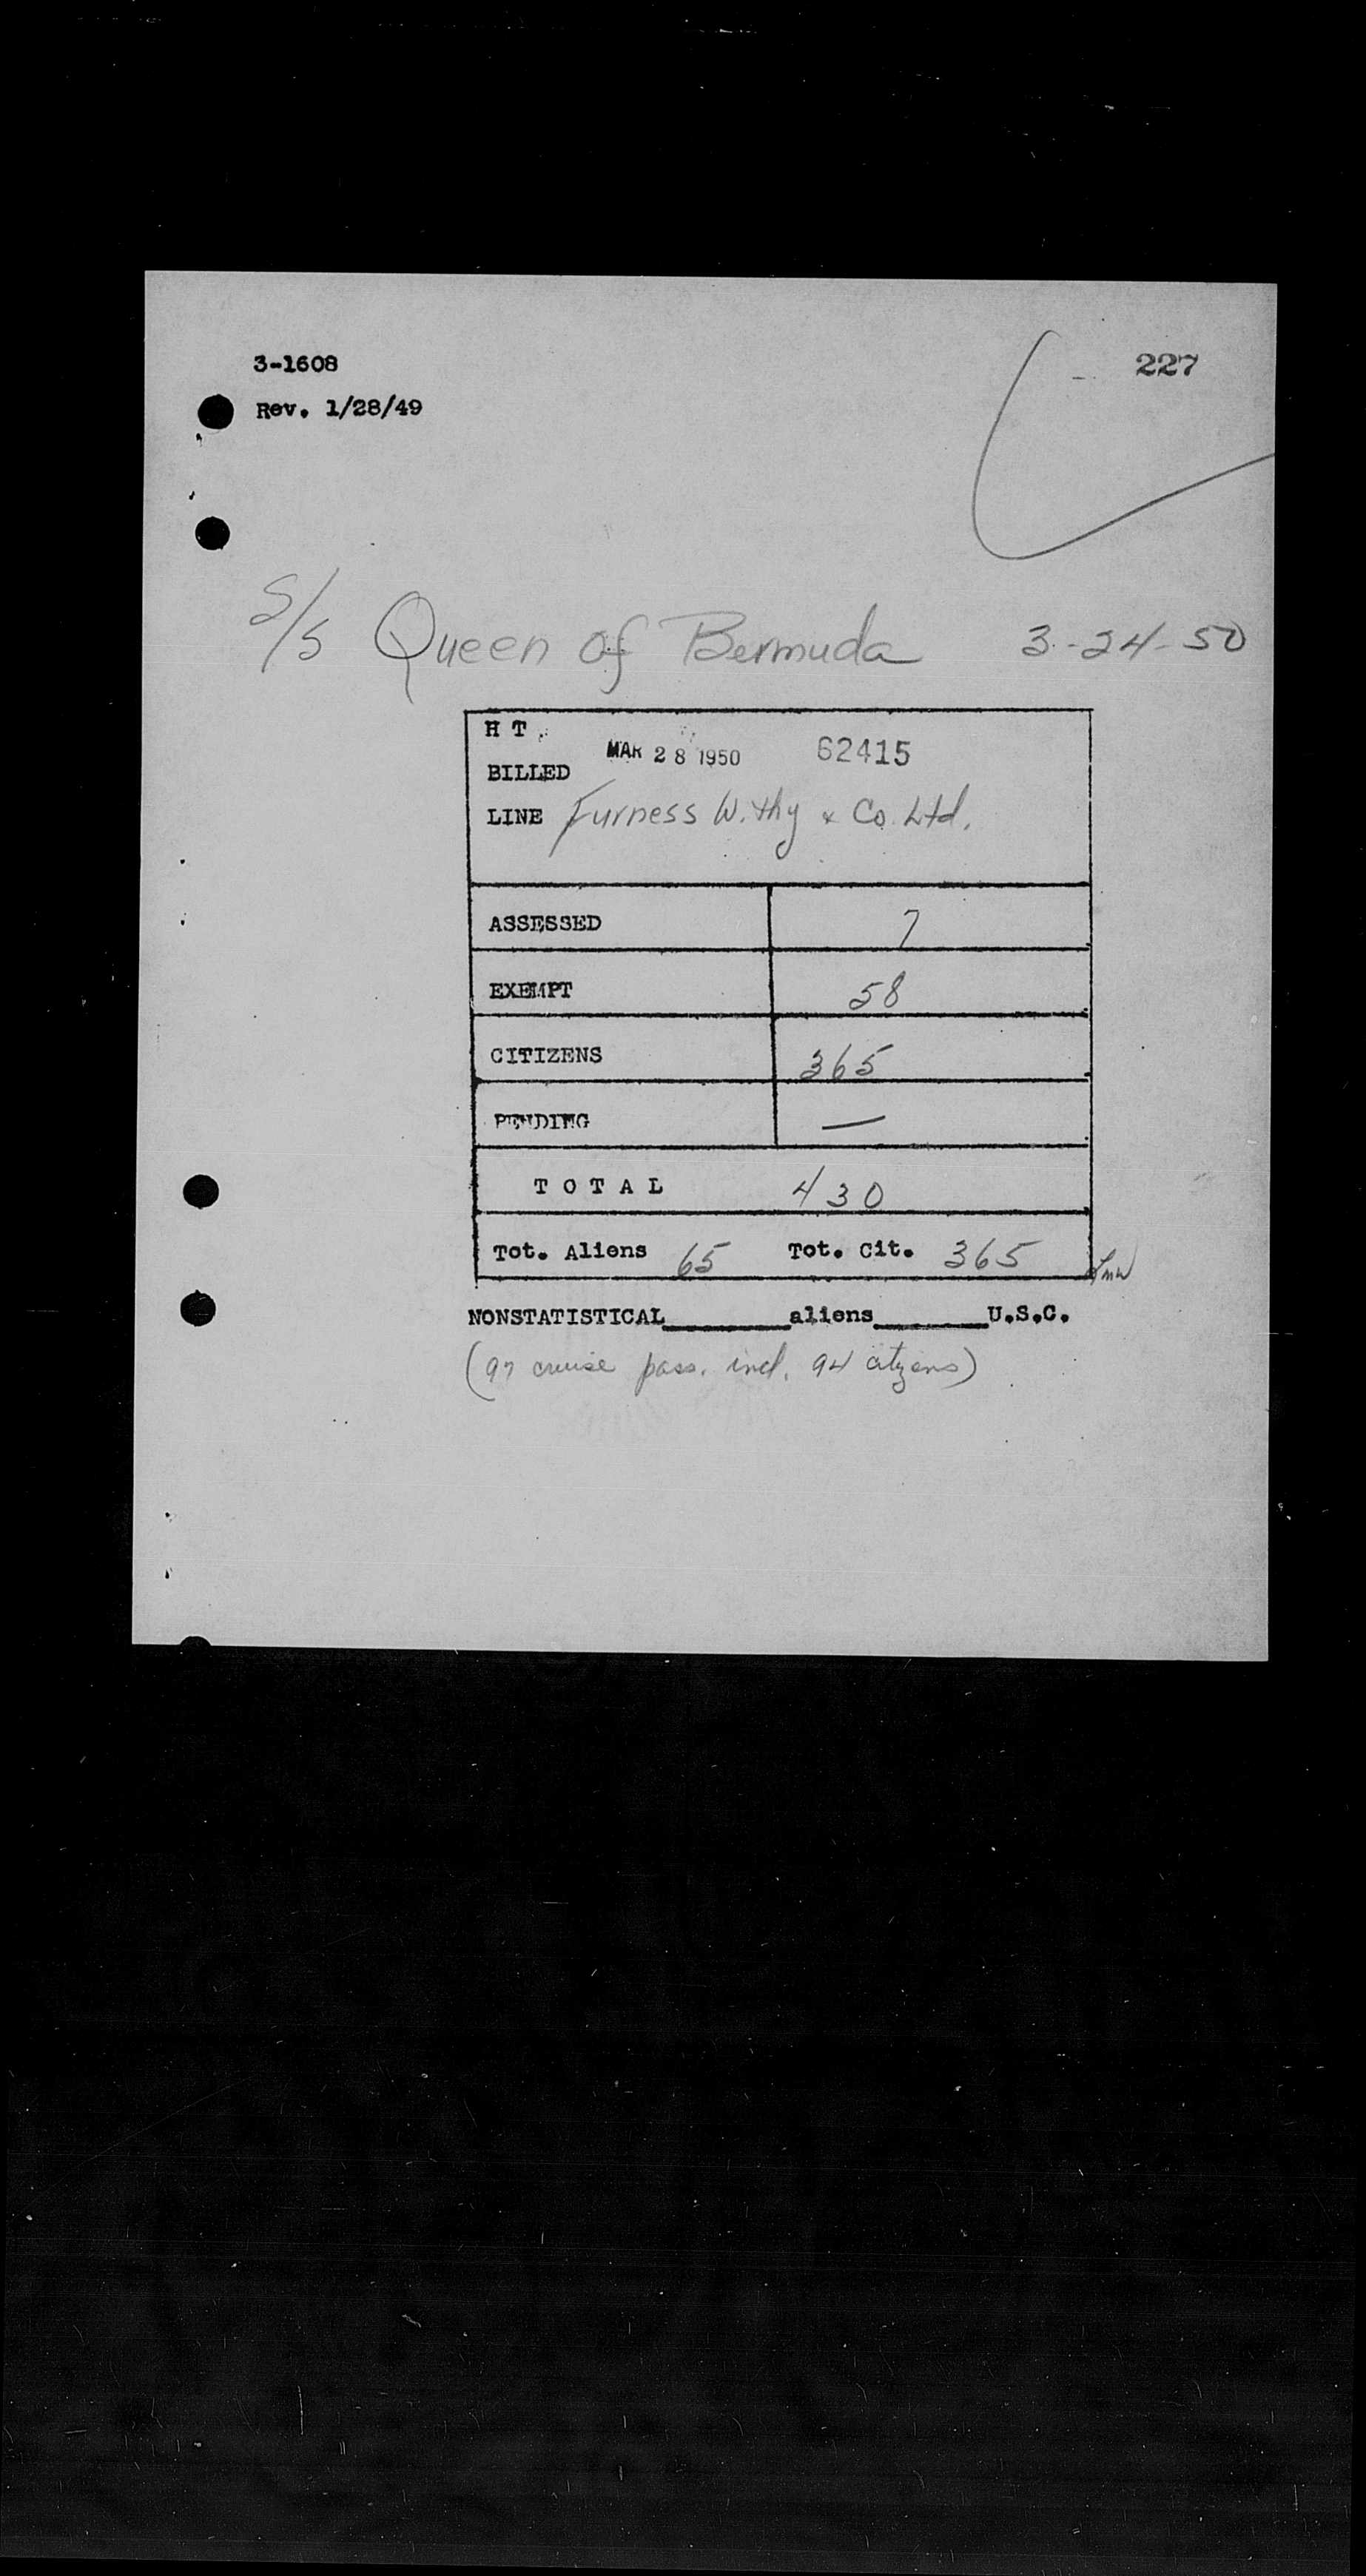 3-1608
227
Rev. 1/28/49
S/S Queen of Bermuda 3-24-50
H T.
MAR 28 1950 62415
BILLED
LINE Furness Withy & Co. Ltd.
ASSESSED 7
EXEMPT 58
CITIZENS 365
PENDING —
TOTAL 430
Tot. Aliens 65 Tot. Cit. 365
NONSTATISTICAL________aliens_______U.S.C.
(97 cruise pass. incl. 94 citizens)